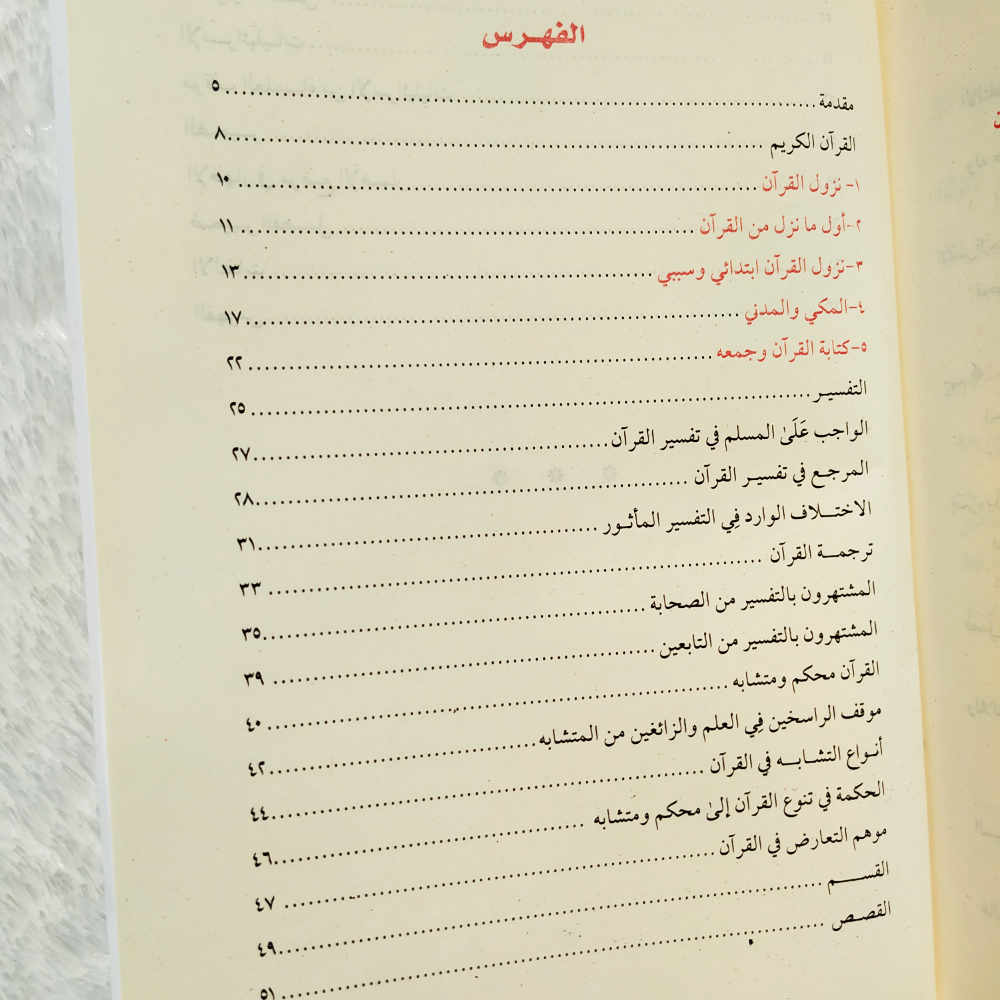 الفهـرس
مقدمة ........ ٥
القرآن الكريم ........ ٨
١- نزول القرآن ........ ١٠
٢-أول ما نزل من القرآن ........ ١١
٣-نزول القرآن ابتدائي وسببي ........ ١٣
٤-المكي والمدني ........ ١٧
٥-كتابة القرآن وجمعه ........ ٢٢
التفسيـر ........ ٢٥
الواجب عَلَىٰ المسلم في تفسير القرآن ........ ٢٧
المرجـع في تفسيـر القرآن ........ ٢٨
الاختـــلاف الوارد فِي التفسير المأثـور ........ ٣١
ترجمــة القرآن ........ ٣٣
المشتهرون بالتفسير من الصحابة ........ ٣٥
المشتهرون بالتفسير من التابعين ........ ٣٩
القرآن محكم ومتشابه ........ ٤٠
موقف الراسخين فِي العلم والزائغين من المتشابه ........ ٤٢
أنـواع التشـابـــه في القرآن ........ ٤٤
الحكمة في تنوع القرآن إلىٰ محكم ومتشابه ........ ٤٦
موهم التعارض في القرآن ........ ٤٧
القســــم ........ ٤٩
القصـص ........ ٥١